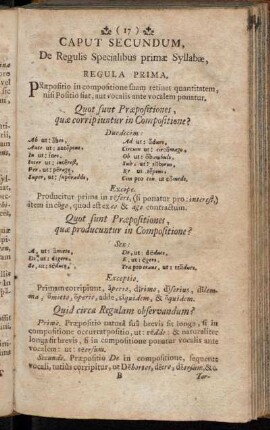 ( 17 )
CAPUT SECUNDUM,
De Regulis Specialibus primæ Syllabæ,
REGULA PRIMA,
PRæpositio in compositione suam retinet quantitatem,
nisi Positio fiat, aut vocalis ante vocalem ponatur.
Quot sunt Præpositiones,
quæ corripiuntur in Compositione?
Duodecim:
Ab ut: ăbeo,
Ante ut: antĕpono,
In ut:
Inter ut:
Per, ut:
Super, ut:
Ad ut:
Circum ut:
Ob ut:
Sub, ut:
Re ut.
Exceptio.
Producitur prima in rēfert, (si ponatur pro: interest,)
item in cōgo, quod est ex co & ago contractum.
Quot sunt Præpositiones,
quæ producuntur in Compositione?
Sex:
A, ut:
Di, ut: dīgero,
Se, ut: sēduco,
De, ut: dēduco,
E, ut: ēgero,
Tra pro trans, ut: trāduco.
Exceptio.
Primam corripiunt,
Quid circa Regulam observandum?
Primò, Præpositio naturâ suâ brevis fit longa, si in
compositione occurrat positio, ut: & naturaliter
longa fit brevis, si in compositione ponatur vocalis ante
vocalem: ut:
Secundò, Præpositio De in compositione, sequente
vocali, tutiùs corripitur, ut Dĕhortor, &c.
B